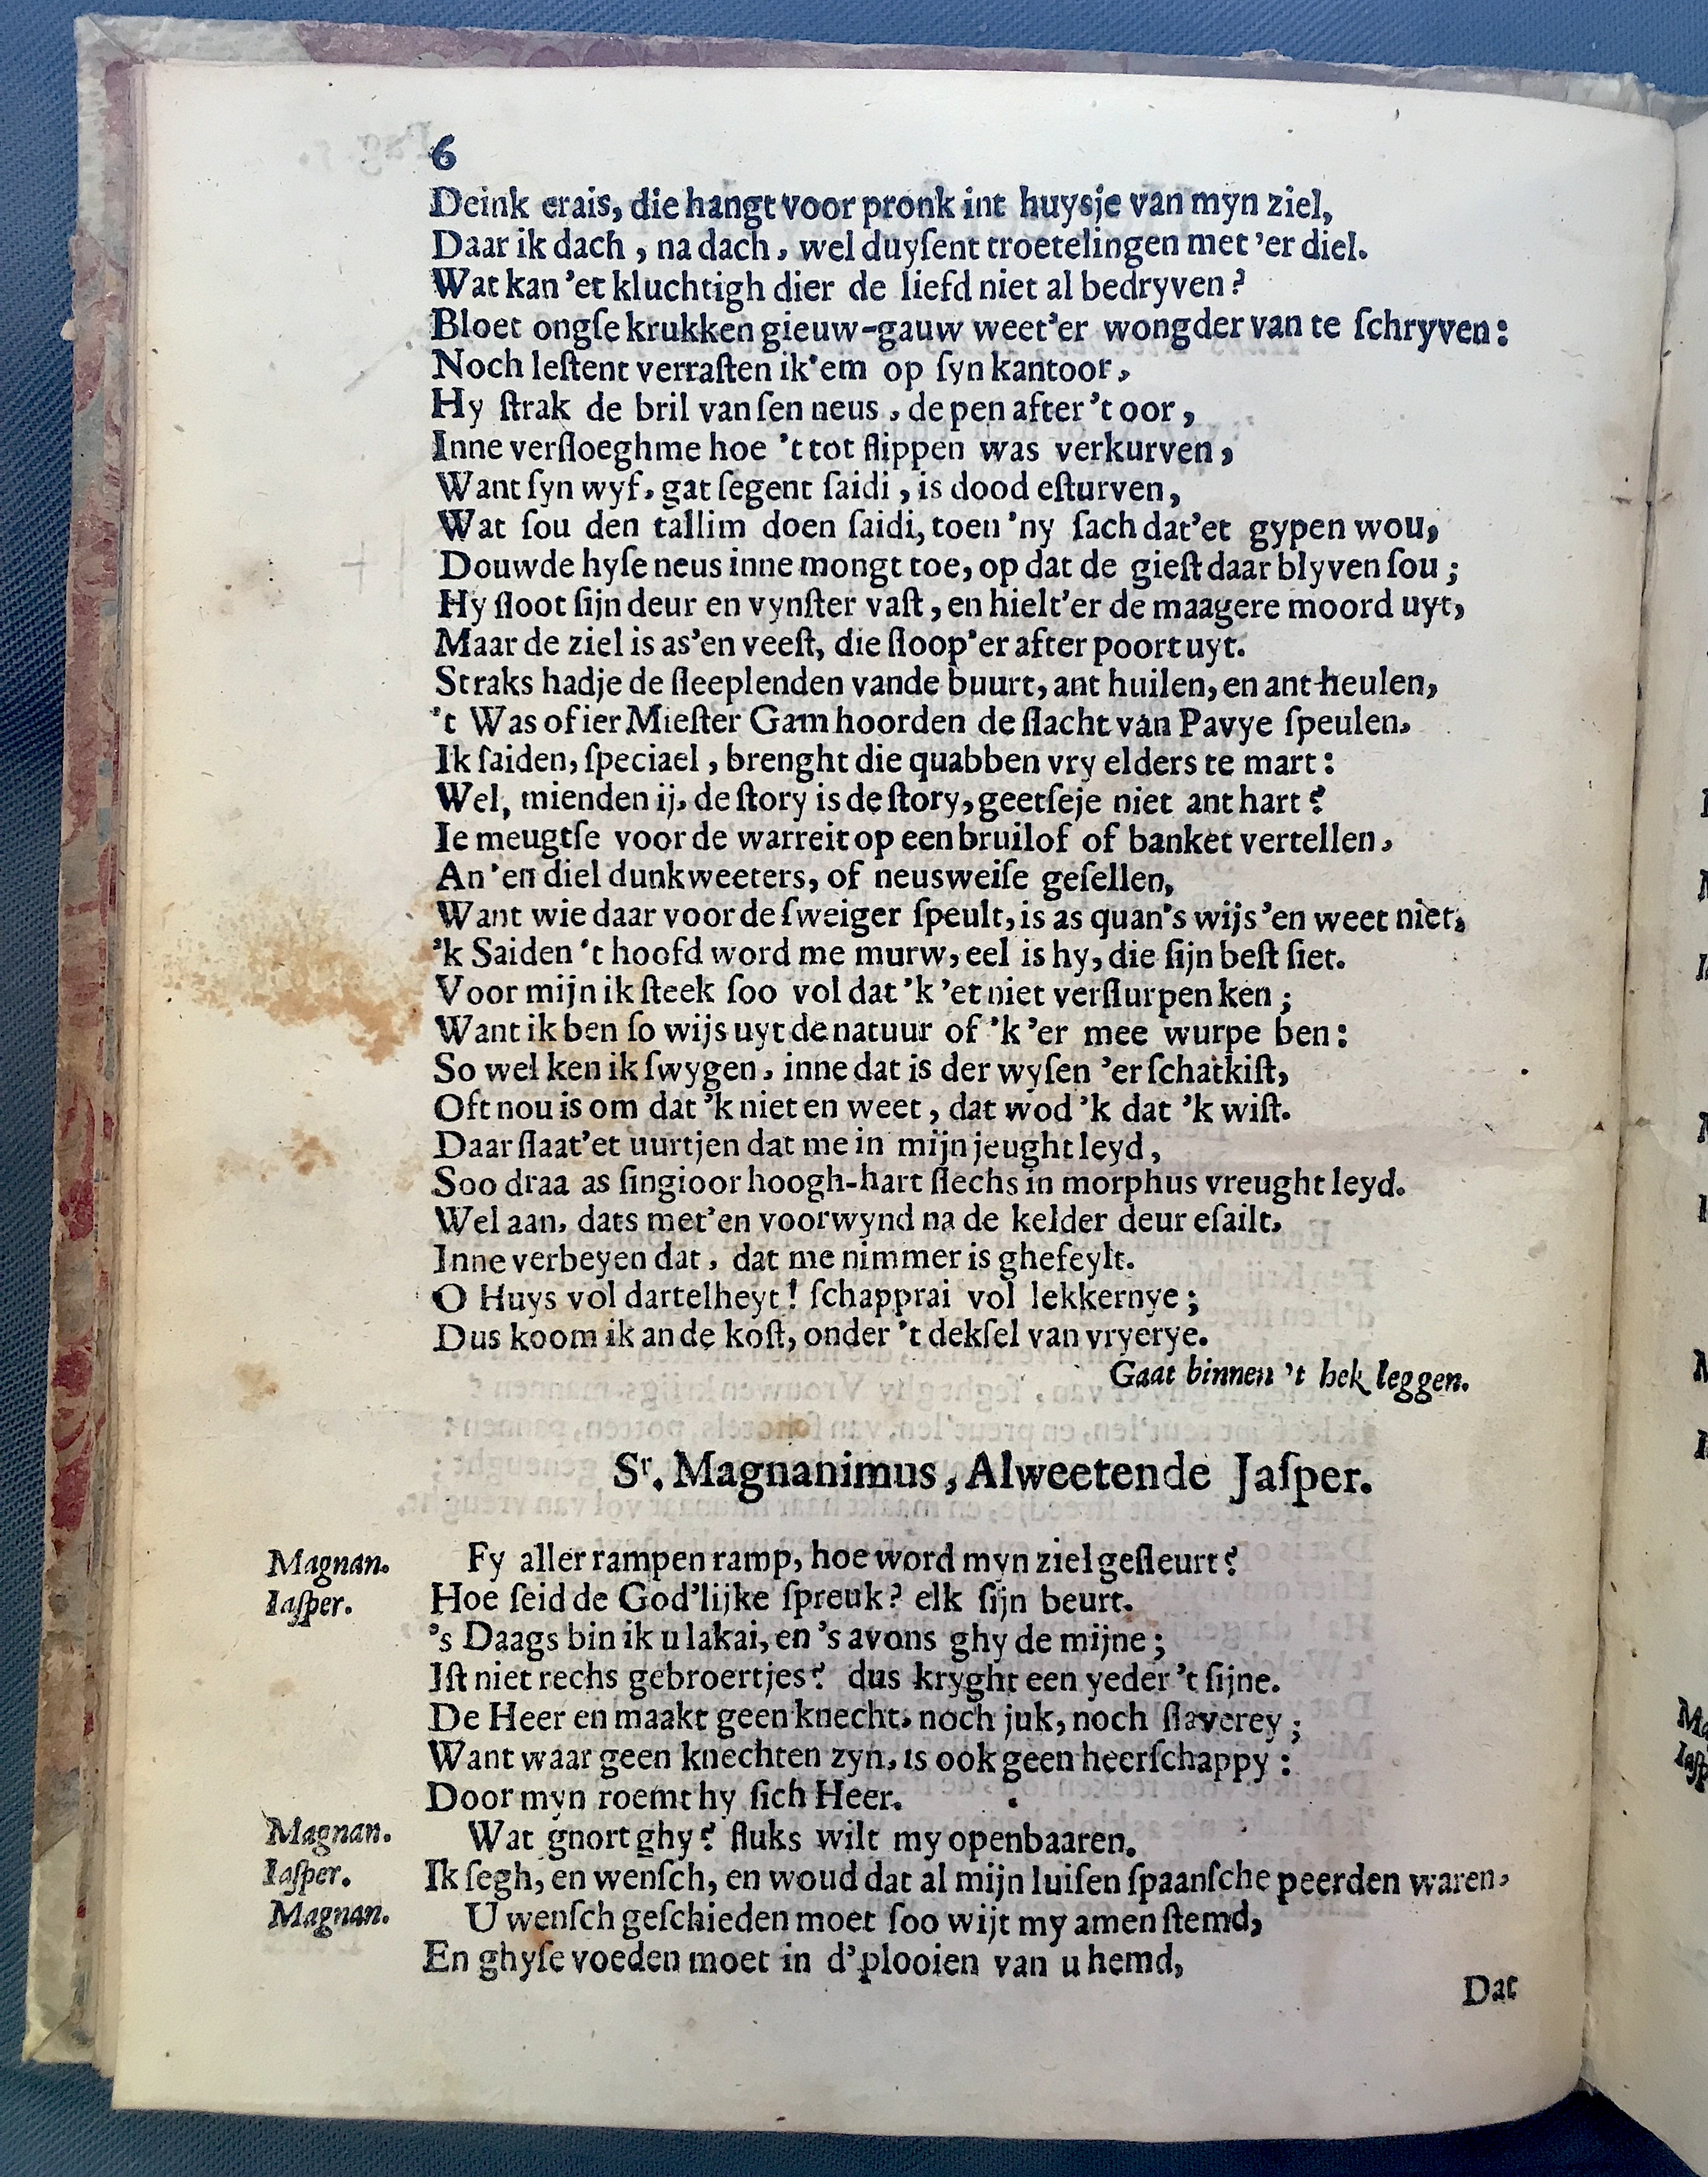 6
Deink erais, die hangt voor pronk int huysje van myn ziel,
Daar ik dach, na dach, wel duyſent troetelingen met 'er diel.
Wat kan 'et kluchtigh dier de liefd niet al bedryven?
Bloet ongſe krukken gieuw-gauw weet'er wongder van te ſchryven:
Noch leſtent verraſten ik'em op ſyn kantoor,
Hy ſtrak de bril van ſen neus, de pen after 't oor,
Inne verſloeghme hoe 't tot ſlippen was verkurven,
Want ſyn wyf, gat ſegent ſaidi, is dood eſturven,
Wat ſou den tallim doen ſaidi, toen 'ny ſach dat'et gypen wou,
Douwde hyſe neus inne mongt toe, op dat de gieſt daar blyven ſou;
Hy ſloot ſijn deur en vynſter vaſt, en hielt'er de maagere moord uyt,
Maar de ziel is as'en veeſt, die ſloop'er after poort uyt.
Straks hadje de ſleeplenden vande buurt, ant huilen, en ant heulen,
't Was of ier Mieſter Gam hoorden de ſlacht van Pavye ſpeulen,
Ik ſaiden, ſpeciael, brenght die quabben vry elders te mart:
Wel, mienden ij, de ſtory is de ſtory, geetſeje niet ant hart?
Ie meugtſe voor de warreit op een bruilof of banket vertellen,
An 'en diel dunkweeters, of neusweiſe geſellen,
Want wie daar voor de ſweiger ſpeult, is as quan's wijs 'en weet niet,
'k Saiden 't hoofd word me murw, eel is hy, die ſijn beſt ſiet.
Voor mijn ik ſteek ſoo vol dat 'k 'et niet verſlurpen ken;
Want ik ben ſo wijs uyt de natuur of 'k 'er mee wurpe ben:
So wel ken ik ſwygen, inne dat is der wyſen 'er ſchatkiſt,
Oft nou is om dat 'k niet en weet, dat wod 'k dat 'k wiſt.
Daar ſlaat'et uurtjen dat me in mijn jeught leyd,
Soo draa as ſingioor hoogh-hart ſlechs in morphus vreught leyd.
Wel aan, dats met'en voorwynd na de kelder deur eſailt,
Inne verbeyen dat, dat me nimmer is ghefeylt.
O Huys vol dartelheyt! ſchapprai vol lekkernye;
Dus koom ik an de koſt, onder 't dekſel van vryerye.
Gaat binnen 't hek leggen.
Sr. Magnanimus, Alweetende Jaſper.
Magnan. Fy aller rampen ramp, hoe word myn ziel geſleurt?
Iaſper. Hoe ſeid de God'lijke ſpreuk? elk ſijn beurt.
's Daags bin ik u lakai, en 's avons ghy de mijne;
Iſt niet rechs gebroertjes? dus kryght een yeder 't ſijne.
De Heer en maakt geen knecht, noch juk, noch ſlaverey;
Want waar geen knechten zyn, is ook geen heerſchappy:
Door myn roemt hy ſich Heer.
Magnan. Wat gnort ghy? fluks wilt my openbaaren.
Iaſper. Ik ſegh, en wenſch, en woud dat al mijn luiſen ſpaanſche peerden waren,
Magnan. U wenſch geſchieden moet ſoo wijt my amen ſtemd,
En ghyſe voeden moet in d'plooien van u hemd,
Dat